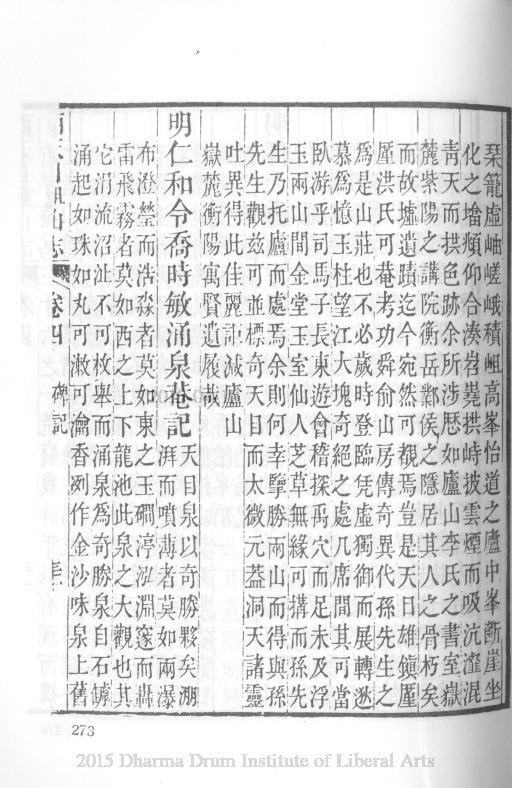 琹籠虛岫嵯峨積岨高峯怡道之廬中峯斷崖坐
化之塲頫仰合湊岧㠉拱峙披雲煙而吸沆瀣混
靑天而拱色跡余所涉厯如廬山李氏之書室嶽
麓紫陽之講院衡岳鄴侯之隱居其人之骨朽矣
而故墟遺蹟迄今宛然可觀焉豈是天目雄鎭厪
厪洪氏可菴考功舜俞山房傳奇異代而孫先生之
爲是山莊也不必歲時登臨凭虛獨御而展轉遙
慕爲憶玉杜望江大塊奇絕之處几席間其可當
臥游乎司馬子長東遊會稽探禹穴而足未及浮
玉兩山間金堂玉室仙人芝草無緣可搆而孫先
生乃托廬而處焉余則何幸擥勝兩山而得與孫
先生觀兹可並標奇天目而太微元葢洞天諸靈
吐異得此佳麗詎減廬山
嶽麓衡陽寓賢遺履哉
明仁和令喬時敏涌泉菴記
天目泉以奇勝夥矣溯
湃而噴薄者莫如兩瀑
布澄瑩而浩淼者莫如東之玉磵渟泓淵邃而轟
雷飛霧者莫如西之上下龍池此泉之大觀也其
它涓流沼沚不可枚舉而涌泉爲奇勝泉自石罅
涌起如珠如丸可漱可瀹香冽作金沙味泉上舊
目山志 卷四 碑記 三
273
2015 Dharma Drum Institute of Liberal Arts